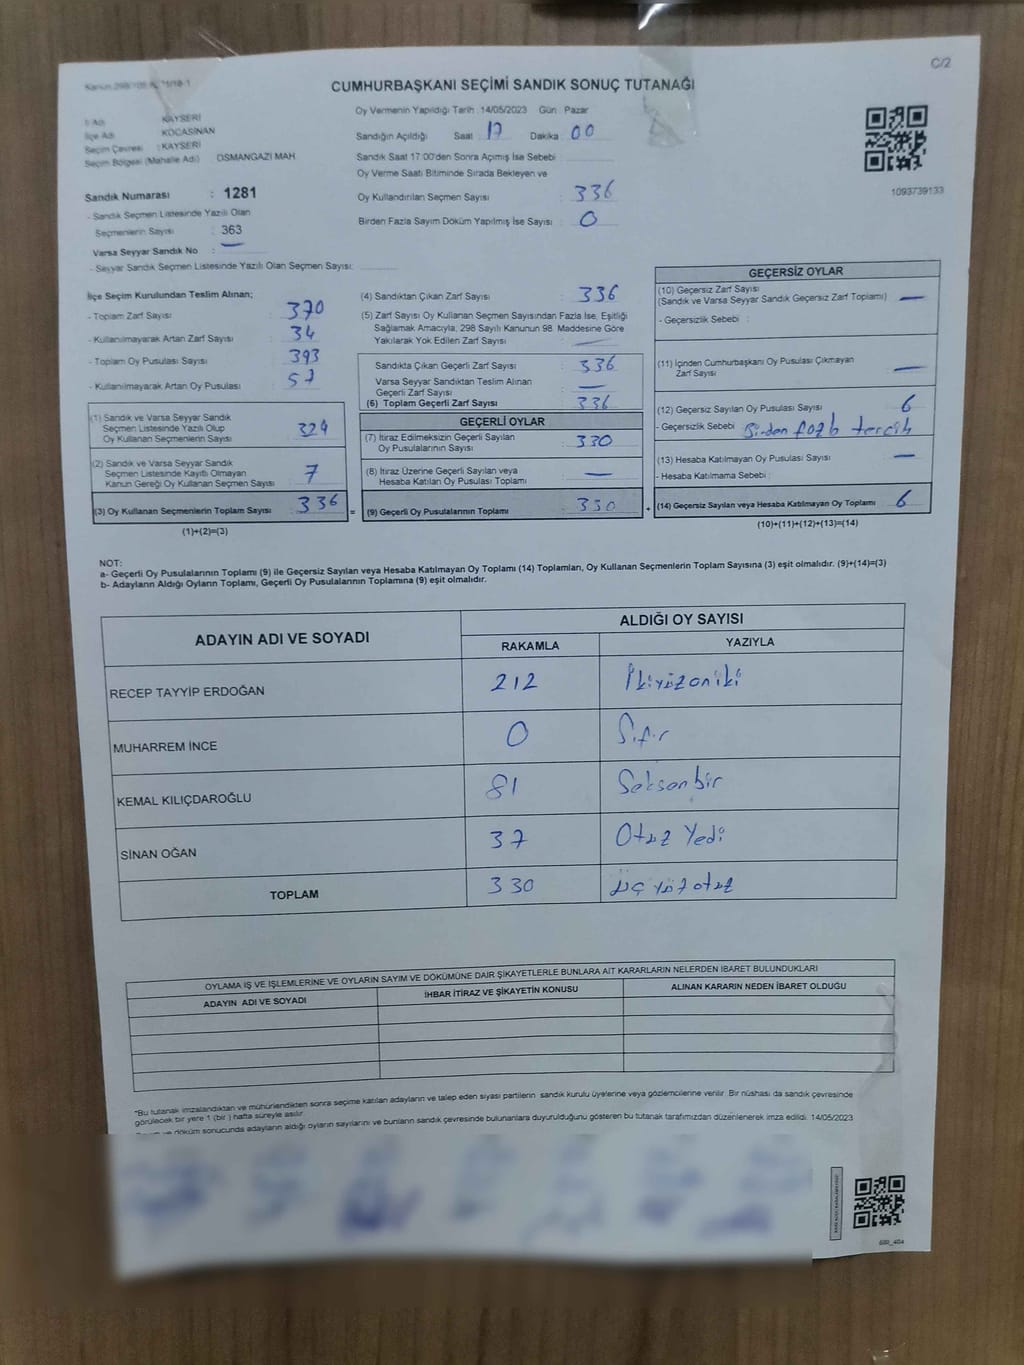 C/2
CUMHURBAŞKANI SEÇİMİ SANDIK SONUÇ TUTANAĞI
İl Adı : KAYSERİ
İlçe Adı : KOCASİNAN
Seçim Çevresi : KAYSERİ
Seçim Bölgesi (Mahalle Adı) OSMANGAZİ MAH
Sandık Numarası : 1281
- Sandık Seçmen Listesinde Yazılı Olan
Seçmenlerin Sayısı : 363
Varsa Seyyar Sandık No : —
- Seyyar Sandık Seçmen Listesinde Yazılı Olan Seçmen Sayısı:
Oy Vermenin Yapıldığı Tarih : 14/05/2023 Gün : Pazar
Sandığın Açıldığı Saat : 17 Dakika : 00
Sandık Saat 17:00'den Sonra Açımış İse Sebebi :
Oy Verme Saati Bitiminde Sırada Bekleyen ve
Oy Kullandırılan Seçmen Sayısı : 336
Birden Fazla Sayım Döküm Yapılmış İse Sayısı : 0
1093739133
İlçe Seçim Kurulundan Teslim Alınan;
- Toplam Zarf Sayısı : 370
- Kullanılmayarak Artan Zarf Sayısı : 34
- Toplam Oy Pusulası Sayısı : 393
- Kullanılmayarak Artan Oy Pusulası : 57
(1) Sandık ve Varsa Seyyar Sandık
Seçmen Listesinde Yazılı Olup
Oy Kullanan Seçmenlerin Sayısı : 329
(2) Sandık ve Varsa Seyyar Sandık
Seçmen Listesinde Kayıtlı Olmayan
Kanun Gereği Oy Kullanan Seçmen Sayısı : 7
(3) Oy Kullanan Seçmenlerin Toplam Sayısı : 336 =
(1)+(2)=(3)
(4) Sandıktan Çıkan Zarf Sayısı : 336
(5) Zarf Sayısı Oy Kullanan Seçmen Sayısından Fazla İse, Eşitliği
Sağlamak Amacıyla, 298 Sayılı Kanunun 98. Maddesine Göre
Yakılarak Yok Edilen Zarf Sayısı : —
Sandıkta Çıkan Geçerli Zarf Sayısı : 336
Varsa Seyyar Sandıktan Teslim Alınan
Geçerli Zarf Sayısı : —
(6) Toplam Geçerli Zarf Sayısı : 336
GEÇERLİ OYLAR
(7) İtiraz Edilmeksizin Geçerli Sayılan
Oy Pusulalarının Sayısı : 330
(8) İtiraz Üzerine Geçerli Sayılan veya
Hesaba Katılan Oy Pusulası Toplamı : —
(9) Geçerli Oy Pusulalarının Toplamı : 330 +
GEÇERSİZ OYLAR
(10) Geçersiz Zarf Sayısı
(Sandık ve Varsa Seyyar Sandık Geçersiz Zarf Toplamı) : —
- Geçersizlik Sebebi :
(11) İçinden Cumhurbaşkanı Oy Pusulası Çıkmayan
Zarf Sayısı : —
(12) Geçersiz Sayılan Oy Pusulası Sayısı : 6
- Geçersizlik Sebebi : Birden fazla tercih
(13) Hesaba Katılmayan Oy Pusulası Sayısı : —
- Hesaba Katılmama Sebebi :
(14) Geçersiz Sayılan veya Hesaba Katılmayan Oy Toplamı : 6
(10)+(11)+(12)+(13)=(14)
NOT:
a- Geçerli Oy Pusulalarının Toplamı (9) ile Geçersiz Sayılan veya Hesaba Katılmayan Oy Toplamı (14) Toplamları, Oy Kullanan Seçmenlerin Toplam Sayısına (3) eşit olmalıdır. (9)+(14)=(3)
b- Adayların Aldığı Oyların Toplamı, Geçerli Oy Pusulalarının Toplamına (9) eşit olmalıdır.
ADAYIN ADI VE SOYADI
ALDIĞI OY SAYISI
RAKAMLA YAZIYLA
RECEP TAYYİP ERDOĞAN 212 İkiyüzoniki
MUHARREM İNCE 0 Sıfır
KEMAL KILIÇDAROĞLU 81 Seksenbir
SİNAN OĞAN 37 Otuz Yedi
TOPLAM 330 üçyüzotuz
OYLAMA İŞ VE İŞLEMLERİNE VE OYLARIN SAYIM VE DÖKÜMÜNE DAİR ŞİKAYETLERLE BUNLARA AİT KARARLARIN NELERDEN İBARET BULUNDUKLARI
ADAYIN ADI VE SOYADI İHBAR İTİRAZ VE ŞİKAYETİN KONUSU ALINAN KARARIN NEDEN İBARET OLDUĞU
"Bu tutanak imzalandıktan ve mühürlendikten sonra seçime katılan adayların ve talep eden siyasi partilerin sandık kurulu üyelerine veya gözlemcilerine verilir. Bir nüshası da sandık çevresinde
görülecek bir yere 1 (bir ) hafta süreyle asılır.
ve döküm sonucunda adayların aldığı oyların sayılarını ve bunların sandık çevresinde bulunanlara duyurulduğunu gösteren bu tutanak tarafımızdan düzenlenerek imza edildi. 14/05/2023